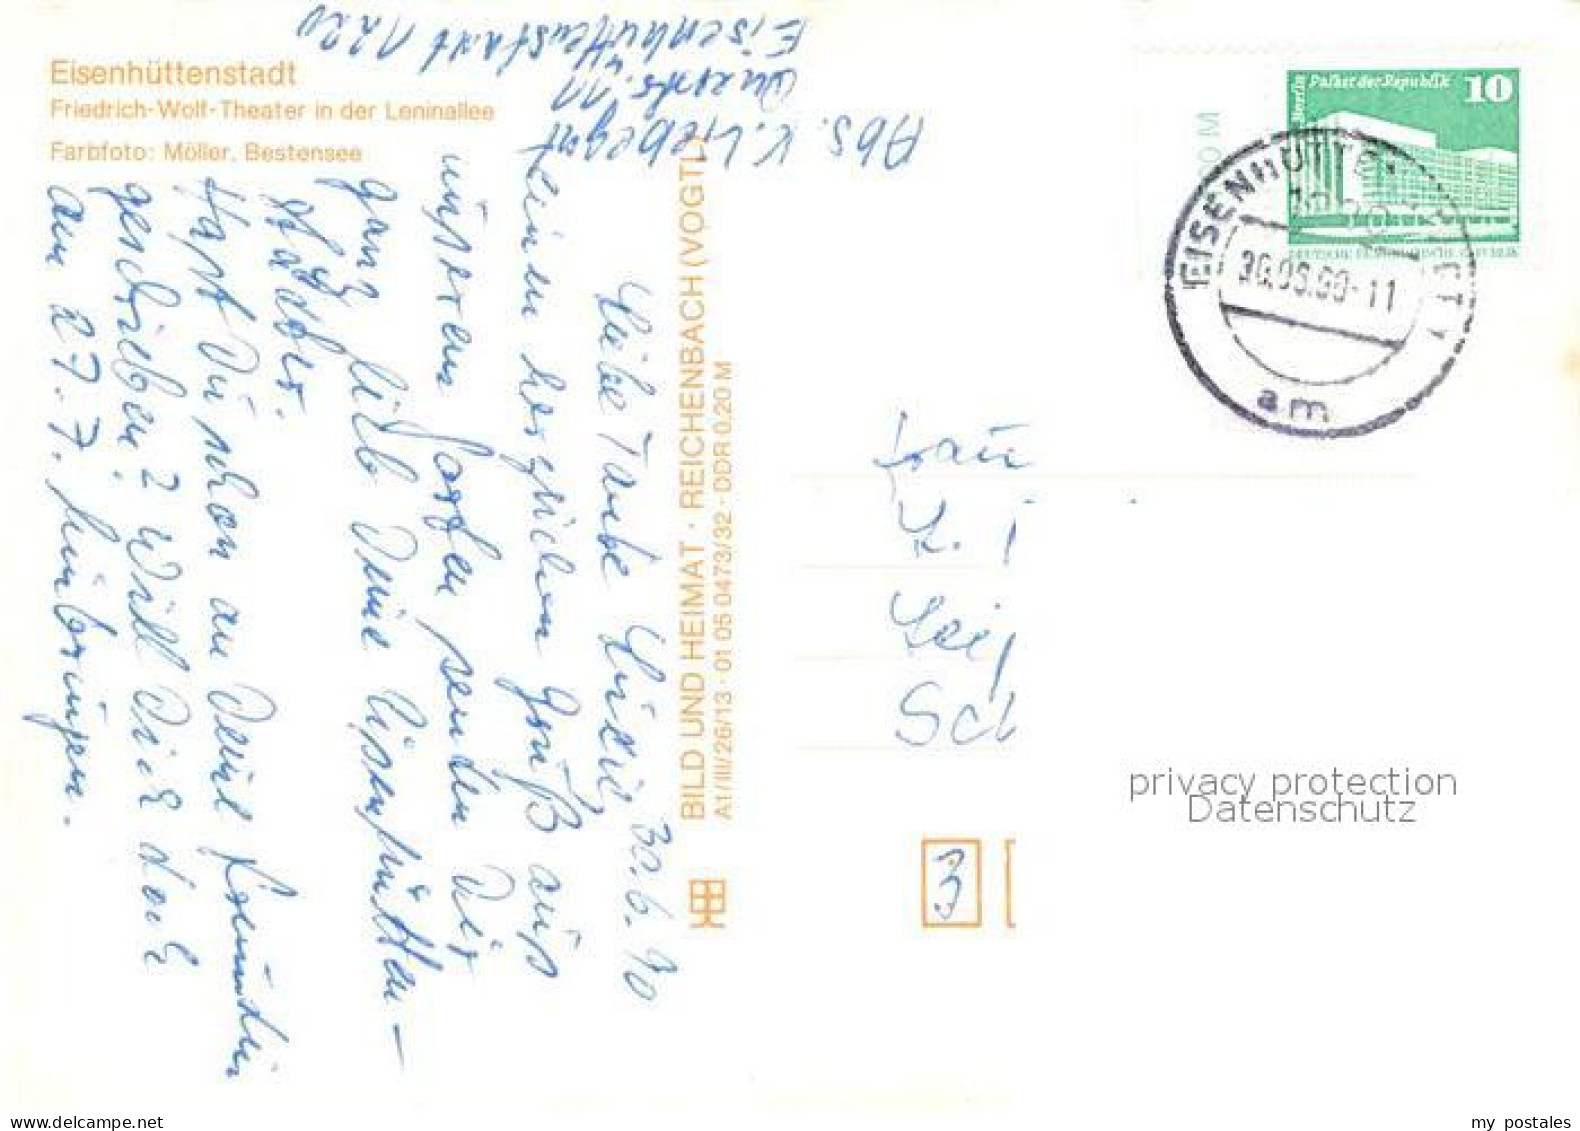 Eisenhüttenstadt
Friedrich-Wolf-Theater in der Leninallee
Farbfoto: Möller, Bestensee
Abs. K. Liebegut
11
Eisenhüttenstadt 1220
30.6.90
Liebe Tante
einen herzlichen Gruß aus
unseren senden Dir
ganz lieb Deine Eisenhütten-
städter.
Hast Du schon an Deine Freundin
geschrieben? Will Dich doch
am 27.7. hinbringen.
BILD UND HEIMAT · REICHENBACH (VOGTL)
A1/III/26/13 · 01 05 0473/32 · DDR 0,20 M
Berlin Palast der Republik 10
DEUTSCHE DEMOKRATISCHE REPUBLIK
0 M
EISENHÜTTENSTADT 1
am
Frau
K.
Leip
Sch
3
privacy protection
Datenschutz
my postales